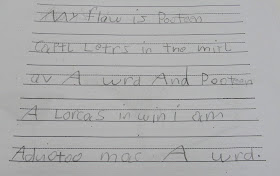 My flaw is Pooteen
Captl Letrs in the mitl
av A wrd And Pooteen
A Lorcas in win i am
Aduotoo mac A wrd.